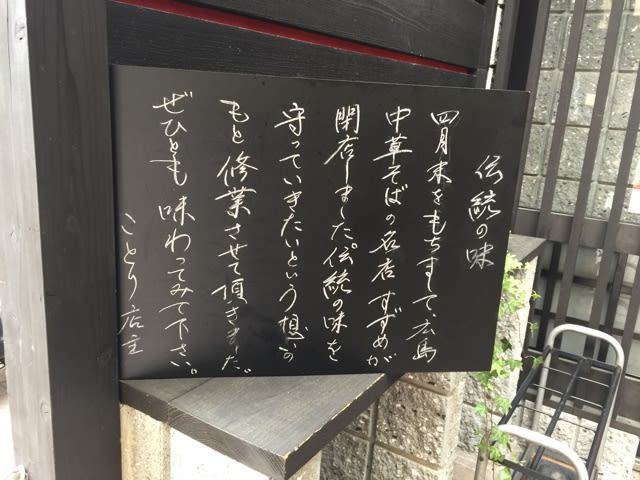 伝統の味
四月末をもちまして、広島
中華そばの名店すずめが
閉店しました。伝統の味を
守っていきたいという想いの
もと修業させて頂きました。
ぜひとも味わってみて下さい。
ことり店主